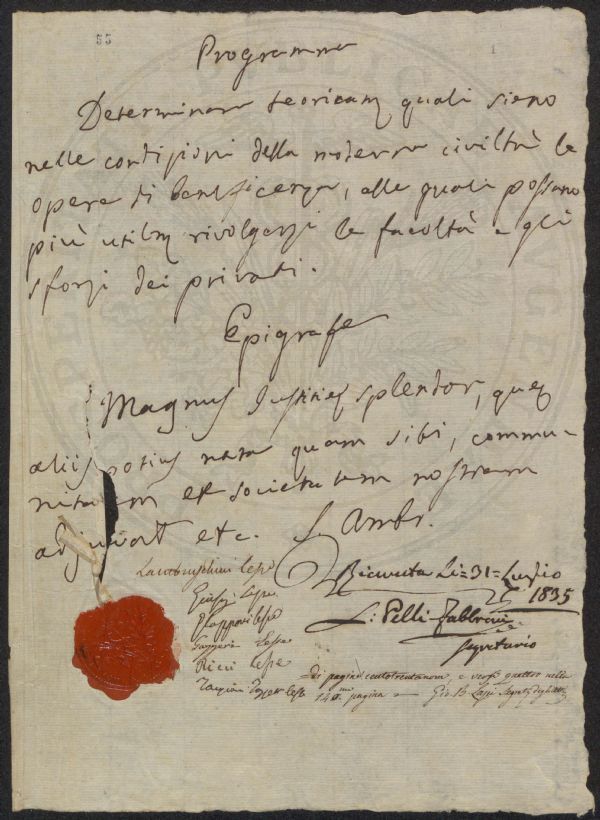 55
Programma
Determinare teoricam quali sieno
nelle condizioni della moderna civiltà le
opere di beneficenza, alle quali possano
più utilm rivolgersi le facoltà e gli
sforzi dei privati.
Epigrafe
Magnus Justitiæ splendor, quæ
aliis potius nata quam sibi, commu-
nitatem et societatem nostram
adjuvat etc. S. Ambr.
Lambruschini Lesse
Ricevuta li = 31 = Luglio
1835
L: Pelli-Fabbroni
Segretario
Lesse
Lesse
Lesse
Ricci Lesse
Di pagine centotrentanove, e versi quattro nella
140.ma pagina